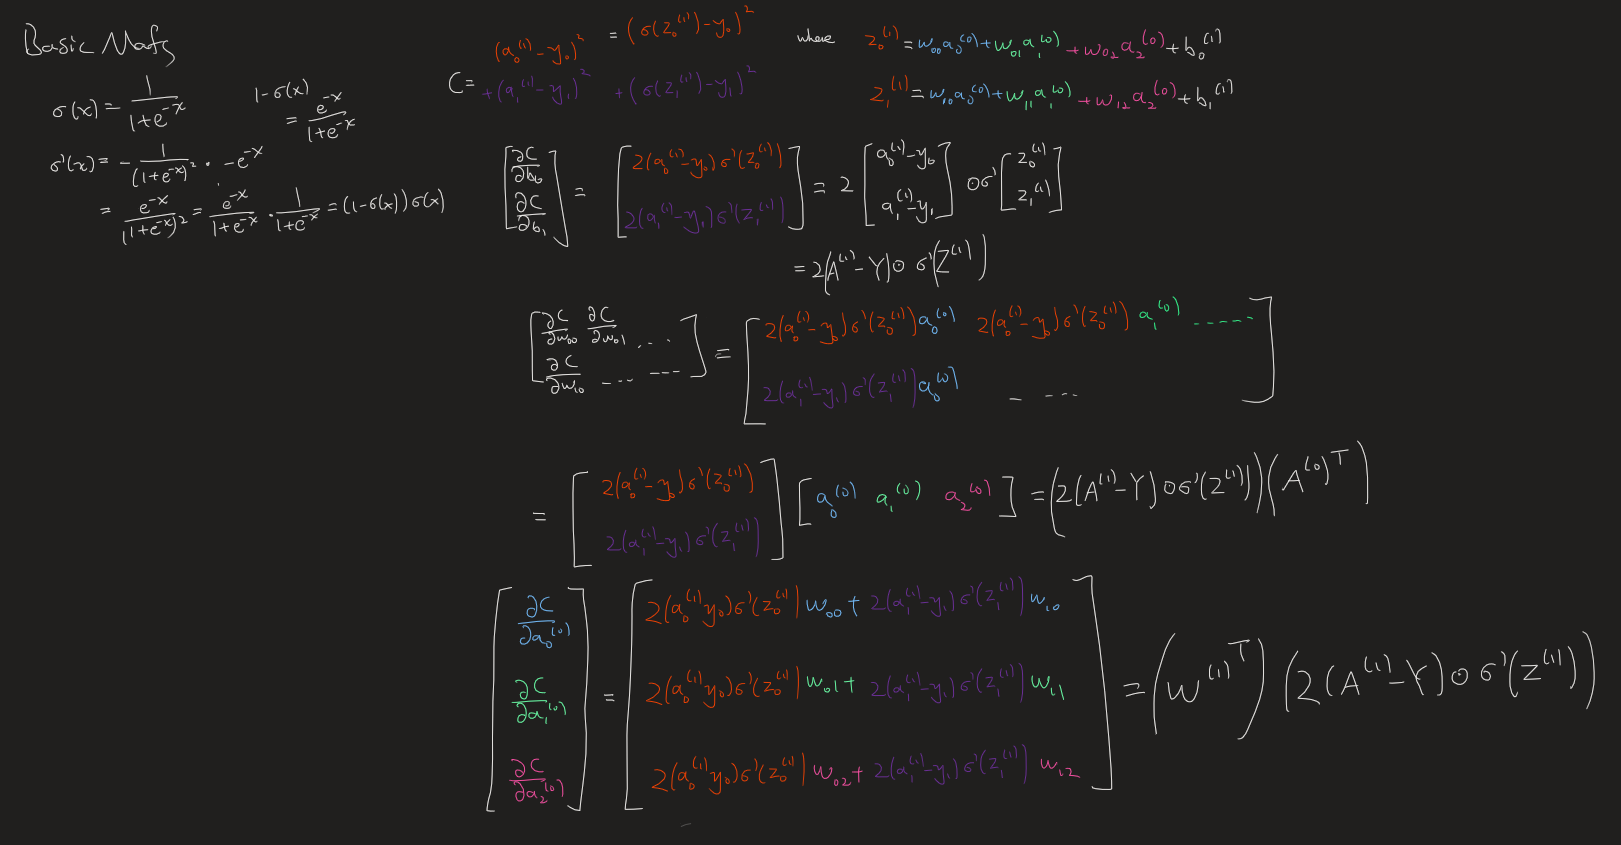 Basic Mafs
σ(x) = 1/(1+e^-x)
1-σ(x)
= e^-x/(1+e^-x)
σ'(x) = - 1/(1+e^-x)^2 · -e^-x
= e^-x/(1+e^-x)^2 = e^-x/(1+e^-x) · 1/(1+e^-x) = (1-σ(x))σ(x)
C = (a_0^(1) - y_0)^2 + (a_1^(1) - y_1)^2
= (σ(z_0^(1)) - y_0)^2 + (σ(z_1^(1)) - y_1)^2
where z_0^(1) = w_00 a_0^(0) + w_01 a_1^(0) + w_02 a_2^(0) + b_0^(1)
z_1^(1) = w_10 a_0^(0) + w_11 a_1^(0) + w_12 a_2^(0) + b_1^(1)
[∂C/∂b_0 ; ∂C/∂b_1] = [2(a_0^(1) - y_0)σ'(z_0^(1)) ; 2(a_1^(1) - y_1)σ'(z_1^(1))] = 2 [a_0^(1) - y_0 ; a_1^(1) - y_1] ⊙ σ' [z_0^(1) ; z_1^(1)]
= 2(A^(1) - Y) ⊙ σ'(Z^(1))
[∂C/∂w_00 ∂C/∂w_01 ... ; ∂C/∂w_10 ... ---] = [2(a_0^(1) - y_0)σ'(z_0^(1))a_0^(0) 2(a_0^(1) - y_0)σ'(z_0^(1))a_1^(0) ------ ; 2(a_1^(1) - y_1)σ'(z_1^(1))a_0^(0) - ---]
= [2(a_0^(1) - y_0)σ'(z_0^(1)) ; 2(a_1^(1) - y_1)σ'(z_1^(1))] [a_0^(0) a_1^(0) a_2^(0)] = (2(A^(1) - Y) ⊙ σ'(Z^(1)))(A^(0)^T)
[∂C/∂a_0^(0) ; ∂C/∂a_1^(0) ; ∂C/∂a_2^(0)] = [2(a_0^(1) y_0)σ'(z_0^(1))w_00 + 2(a_1^(1) - y_1)σ'(z_1^(1))w_10 ; 2(a_0^(1) y_0)σ'(z_0^(1))w_01 + 2(a_1^(1) - y_1)σ'(z_1^(1))w_11 ; 2(a_0^(1) y_0)σ'(z_0^(1))w_02 + 2(a_1^(1) - y_1)σ'(z_1^(1))w_12] = (W^(1)^T)(2(A^(1) - Y) ⊙ σ'(Z^(1)))